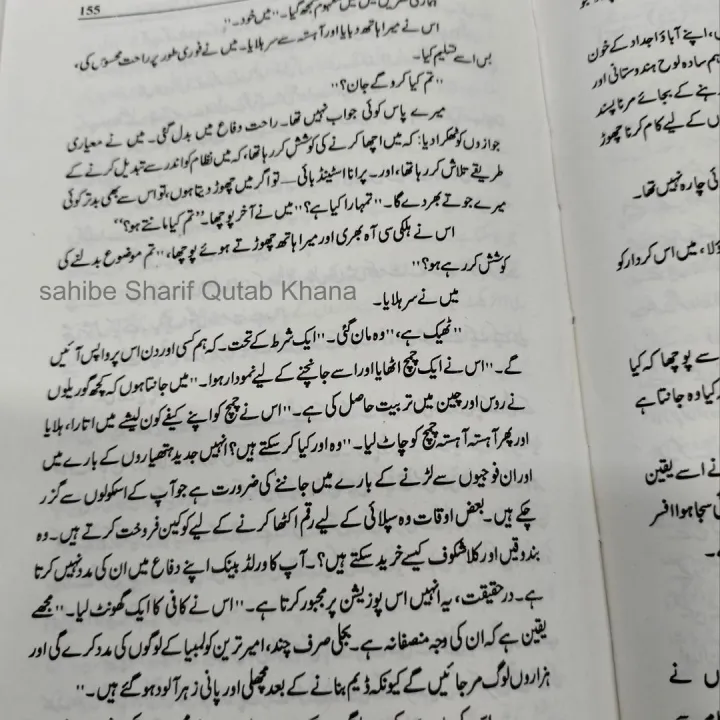 155
سمجھ گیا۔ "میں خود۔"
اس نے میرا ہاتھ دبایا اور آہستہ سے سر ہلایا۔ میں نے فوری طور پر راحت محسوس کی،
بس اسے تسلیم کیا۔
"تم کیا کرو گے جان؟"
میرے پاس کوئی جواب نہیں تھا۔ راحت دفاع میں بدل گئی۔ میں نے معیاری
جوازوں کو ٹھکرا دیا: کہ میں اچھا کرنے کی کوشش کر رہا تھا، کہ میں نظام کو اندر سے تبدیل کرنے کے
طریقے تلاش کر رہا تھا، اور۔ پرانا اسٹینڈ بائی—تو اگر میں چھوڑ دیتا ہوں، تو اس سے بھی بدتر کوئی
میرے جوتے بھر دے گا۔ "تمہارا کیا ہے؟" میں نے آخر پوچھا۔ "تم کیا مانتے ہو؟"
اس نے ہلکی سی آہ بھری اور میرا ہاتھ چھوڑتے ہوئے پوچھا، "تم موضوع بدلنے کی
کوشش کر رہے ہو؟"
sahibe Sharif Qutab Khana
میں نے سر ہلایا۔
"ٹھیک ہے،" وہ مان گئی۔ "ایک شرط کے تحت۔ کہ ہم کسی اور دن اس پر واپس آئیں
گے۔" اس نے ایک چمچ اٹھایا اور اسے جانچنے کے لیے نمودار ہوا۔ "میں جانتا ہوں کہ کچھ گوریلوں
نے روس اور چین میں تربیت حاصل کی ہے۔" اس نے چمچ کو اپنے کیفے کون لیشے میں اتارا، ہلایا
اور پھر آہستہ آہستہ چمچ کو چاٹ لیا۔ "وہ اور کیا کر سکتے ہیں؟ انہیں جدید ہتھیاروں کے بارے میں
اور ان فوجیوں سے لڑنے کے بارے میں جاننے کی ضرورت ہے جو آپ کے اسکولوں سے گزر
چکے ہیں۔ بعض اوقات وہ سپلائی کے لیے رقم اکٹھا کرنے کے لیے کوکین فروخت کرتے ہیں۔ وہ
بندوقیں اور کلاشکوف کیسے خرید سکتے ہیں؟۔ آپ کا ورلڈ بینک اپنے دفاع میں ان کی مدد نہیں کرتا
ہے۔ درحقیقت، یہ انہیں اس پوزیشن پر مجبور کرتا ہے۔" اس نے کافی کا ایک گھونٹ لیا۔ "مجھے
یقین ہے کہ ان کی وجہ منصفانہ ہے۔ بجلی صرف چند، امیر ترین کولمبیا کے لوگوں کی مدد کرے گی اور
ہزاروں لوگ مر جائیں گے کیونکہ ڈیم بنانے کے بعد مچھلی اور پانی زہر آلود ہو گئے ہیں۔"
، اپنے آباؤ اجداد کے خون
ہم سادہ لوح ہندوستانی اور
ہنے کے بجائے مرنا پسند
ں کے لیے کام کرنا چھوڑ
ئی چارہ نہیں تھا۔
ولا، میں اس کردار کو
سے پوچھا کہ کیا
کیا وہ جانتا ہے
نے اسے یقین
سجا ہوا افسر
ں نے